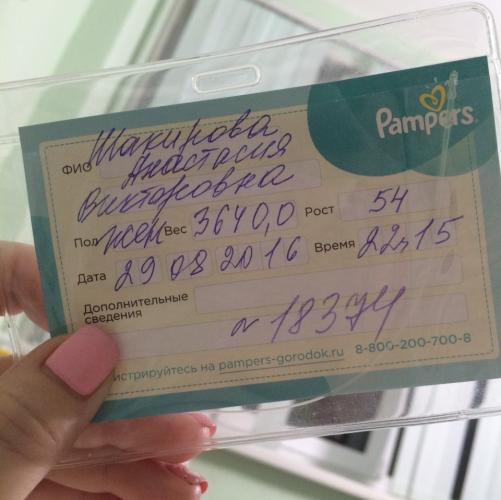 Pampers
ФИО Шакирова
Анастасия
Викторовна
Пол Жен Вес 3640,0 Рост 54
Дата 29 08 2016 Время 22ч15
Дополнительные
сведения
N 1837Ч
истрируйтесь на pampers-gorodok.ru 8-800-200-700-8